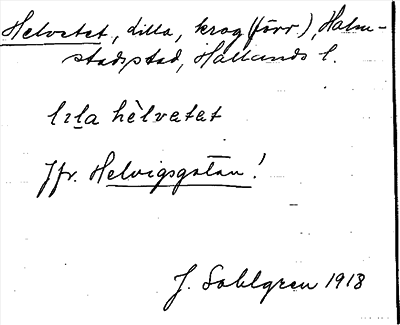 Helvetet, lilla, krog (förr), Halm-
stads stad, Hallands l.
lιla hèlvetet
Jfr. Helvigsgatan!
J. Sahlgren 1918